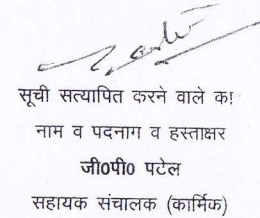 सूची सत्यापित करने वाले क!
नाम व पदनाम व हस्ताक्षर
जी0पी0 पटेल
सहायक संचालक (कार्मिक)